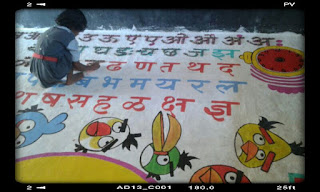 PV
उ ऊ ए ऐ ओ औ अं अः
घ ङ च छ ज झ
ढ ण त थ द
ब भ म य र ल
श ष स ह ळ क्ष ज्ञ
AD13_C001 180.0 25ft